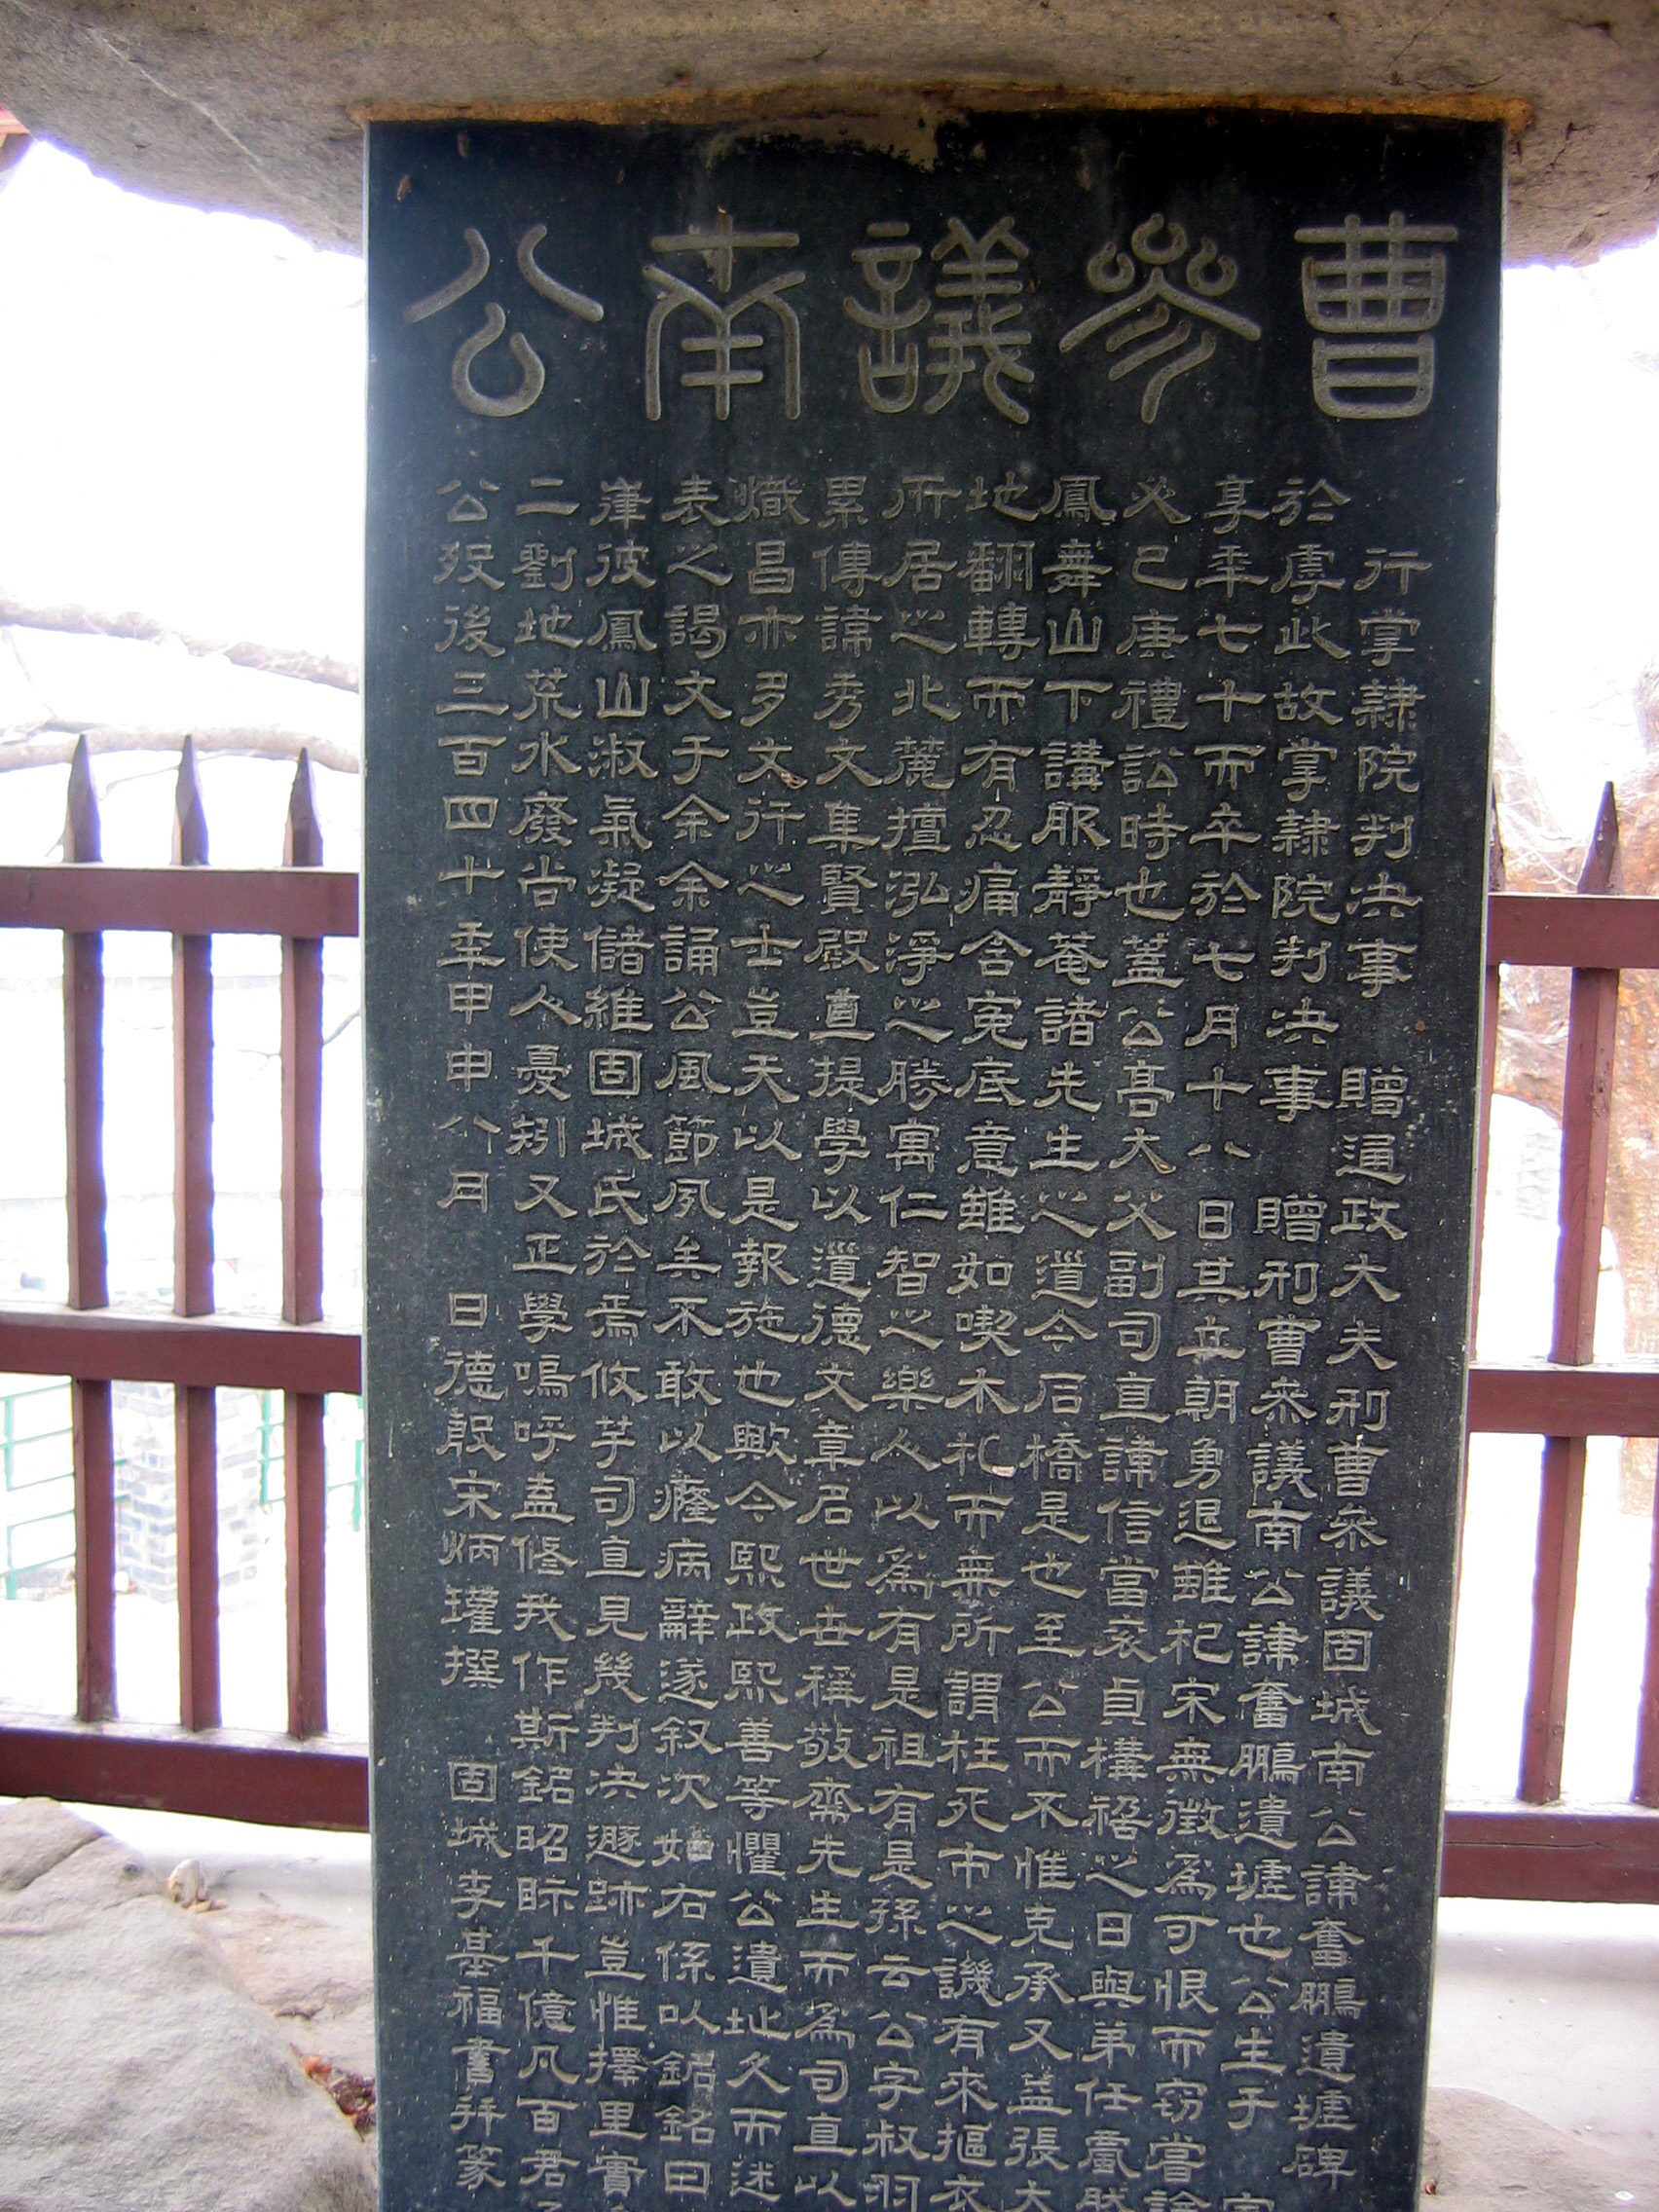 曹參議南公
行掌隷院判決事 贈通政大夫刑曹參議固城南公諱奮鵬遺墟碑
於虖此故掌隷院判決事 贈刑曹參議南公諱奮鵬遺墟也公生于
享年七十而卒於七月十八日其立朝勇退雖杞宋無徵爲可恨而窃嘗論
必己庚禮訟時也蓋公高大父副司直諱信當袞貞構禍之日與弟任
鳳舞山下講服靜菴諸先生之道今石橋是也至公而不惟克承又益張大
地翻轉而有忍痛含寃底意雖如喫木札而無所謂枉死市之譏有來摳衣
所居之北麓擅泓淨之勝寓仁智之樂人以爲有是祖有是孫云公字叔羽
累傳諱秀文集賢殿直提學以道德文章名世世稱敬齋先生而爲司直以
熾昌亦多文行之士豈天以是報施也歟今熙政熙善等懼公遺址久而迷
表之謁文于余余誦公風節夙矣不敢以癃病辭遂叙次如右係以銘銘曰
崔彼鳳山淑氣凝儲維固城氏於焉攸芋司直見幾判决遯跡豈惟擇里實
二劉地荒水廢尚使人憂矧又正學嗚呼盍修我作斯銘昭眎千億凡百君
公歿後三百四十年甲申八月 日德殷宋炳瓘撰 固城李基福書幷篆